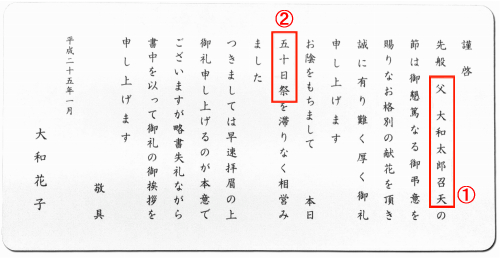 謹啓
先般 父 大和太郎召天の
節は御懇篤なる御弔意を
賜りなお格別の献花を頂き
誠に有り難く厚く御礼
申し上げます
お陰をもちまして 本日
五十日祭を滞りなく相営み
ました
つきましては早速拝眉の上
御礼申し上げるのが本意で
ございますが略書失礼ながら
書中を以って御礼の御挨拶を
申し上げます
敬具
平成二十五年一月
大和花子
①
②